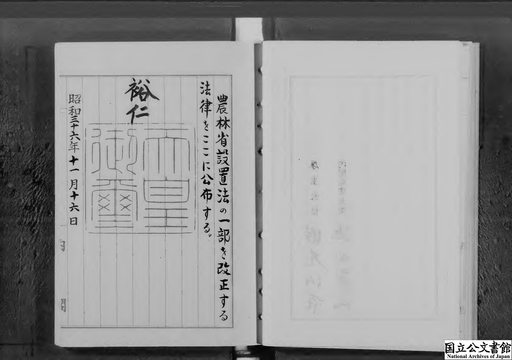 農林省設置法の一部を改正する
法律をここに公布する。
裕仁
天皇
御璽
昭和三十六年十一月十六日
国立公文書館
National Archives of Japan